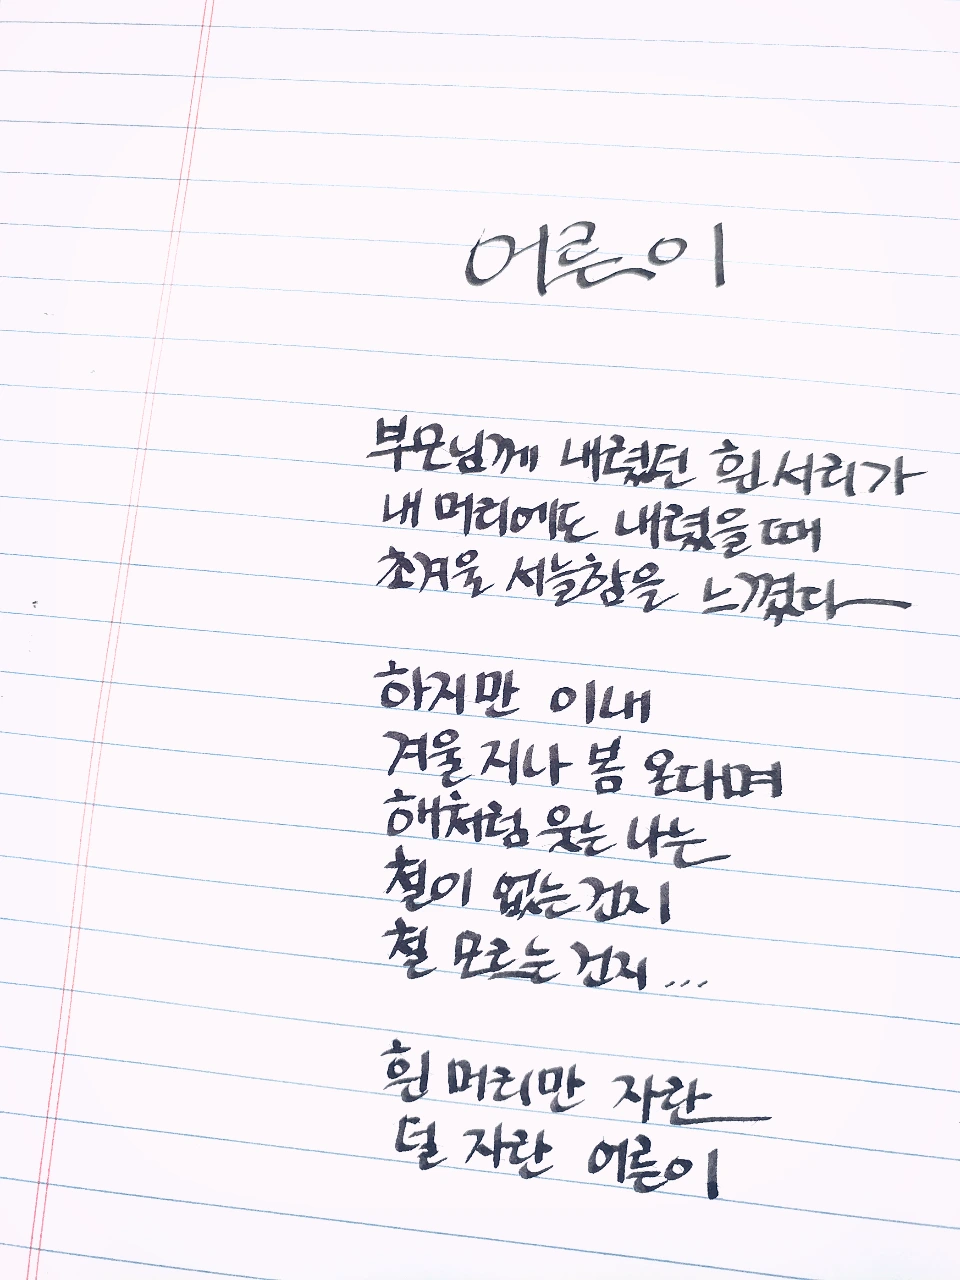 어른이
부모님께 내렸던 흰 서리가
내 머리에도 내렸을 때
초겨울 서늘함을 느꼈다
하지만 이내
겨울 지나 봄 온다며
해처럼 웃는 나는
철이 없는 건지
철 모르는 건지...
흰 머리만 자란
덜 자란 어른이